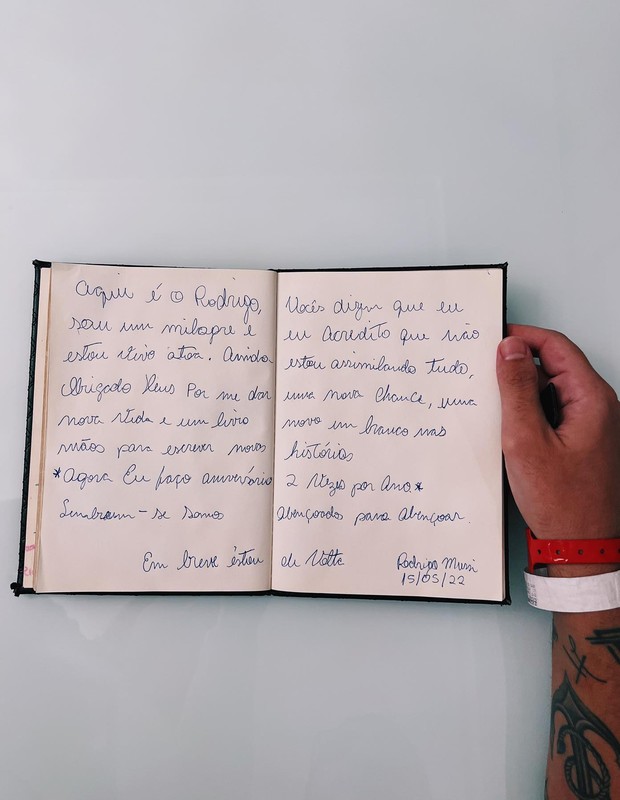 Aqui é o Rodrigo, Vocês dizem que eu
sou um milagre e eu Acredito que não
estou vivo atoa. Ainda estou assimilando tudo,
Obrigado Deus Por me dar uma nova Chance, uma
nova vida e um livro novo em branco nas
mãos para escrever novas histórias
*Agora Eu faço aniversário 2 Vezes por Ano*
Lembrem-se somos Abençoados para Abençoar.
Em breve estou de Volta
Rodrigo Mussi
15/05/22